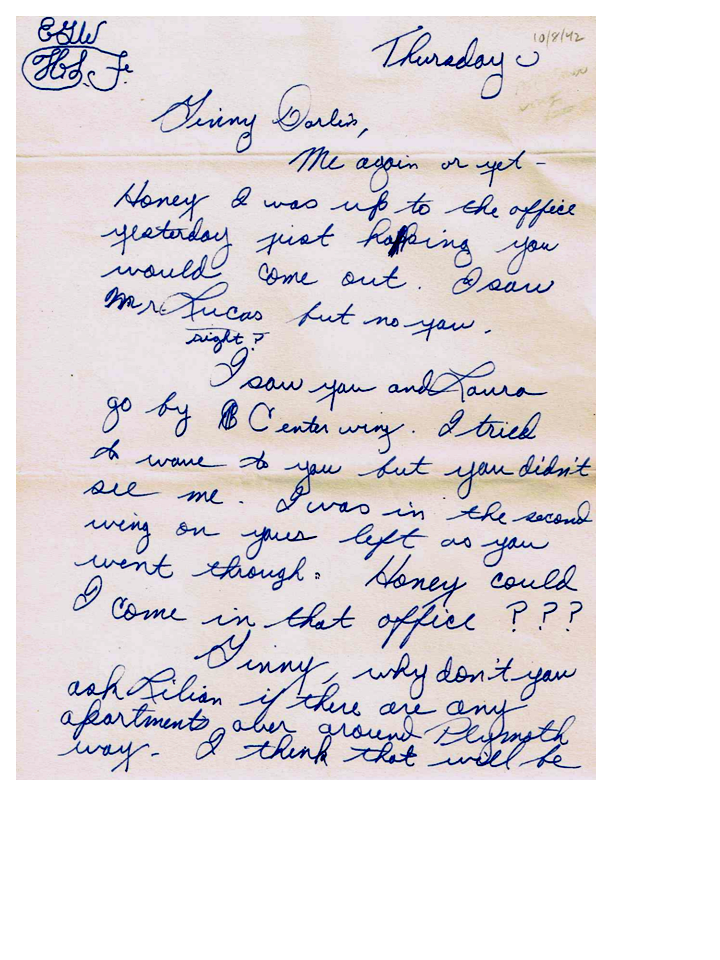 EGW
Thursday
10/8/42
H.L. Jr.
Ginny Darlin,
Me again or yet -
Honey I was up to the office
yesterday just hopping you
would come out. I saw
Mr. Lucas but no you.
right?
I saw you and Laura
go by B Center wing. I tried
to wave to you but you didn't
see me. I was in the second
wing on your left as you
went through. Honey could
I come in that office ???
Ginny, why don't you
ask Lilian if there are any
apartments over around Plymoth
way. I think that will be